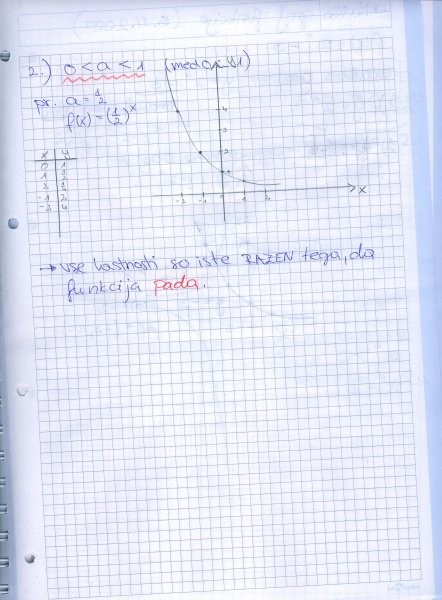 2.) 0 < a < 1 (med 0 in 1)
pr. a = 1/2
f(x) = (1/2)^x
x | y
0 | 1
1 | 1/2
2 | 1/4
-1 | 2
-2 | 4
4
3
2
1
-2 -1 0 1 2 x
→ vse lastnosti so iste RAZEN tega, da
funkcija pada.